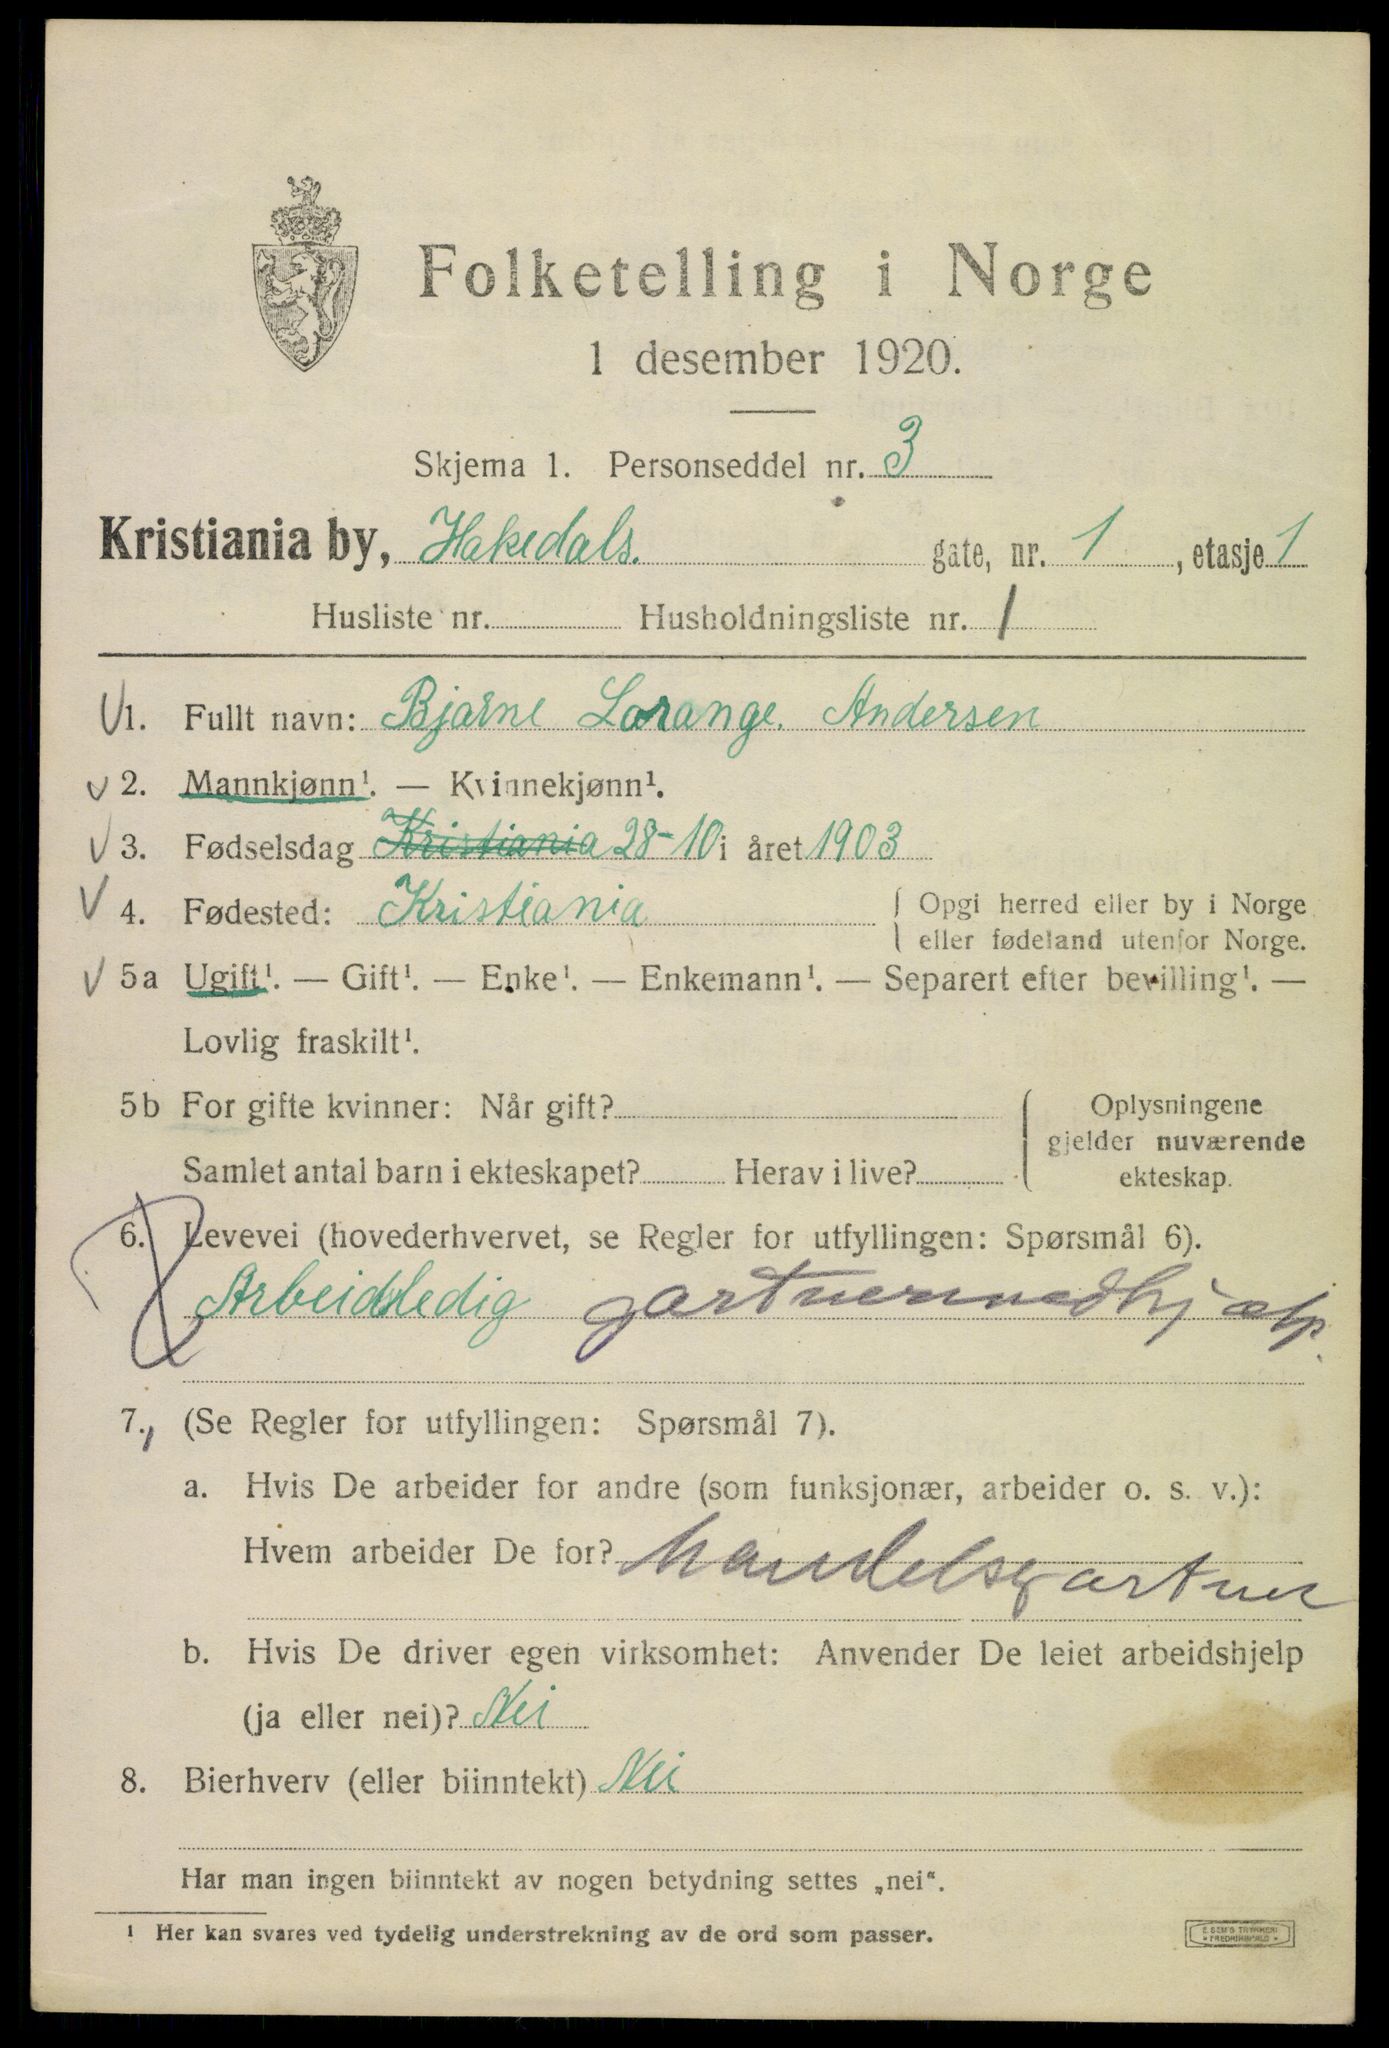 Folketelling i Norge
1 desember 1920.
Skjema 1. Personseddel nr. 3
Kristiania by, Hakedals. gate, nr. 1, etasje 1
Husliste nr. Husholdningsliste nr. 1
1. Fullt navn: Bjarne Lorange. Andersen
2. Mannkjønn¹. — Kvinnekjønn¹.
3. Fødselsdag Kristiania 28-10 i året 1903
4. Fødested: Kristiania
Opgi herred eller by i Norge
eller fødeland utenfor Norge.
5a Ugift¹. — Gift¹. — Enke¹. — Enkemann¹. — Separert efter bevilling¹. —
Lovlig fraskilt¹.
5b For gifte kvinner: Når gift?
Samlet antal barn i ekteskapet? Herav i live?
Oplysningene
gjelder nuværende
ekteskap.
6. Levevei (hovederhvervet, se Regler for utfyllingen: Spørsmål 6).
Arbeidsledig gartnermedhjælp.
7. (Se Regler for utfyllingen: Spørsmål 7).
a. Hvis De arbeider for andre (som funksjonær, arbeider o. s. v.):
Hvem arbeider De for? handelsgartner
b. Hvis De driver egen virksomhet: Anvender De leiet arbeidshjelp
(ja eller nei)? Nei
8. Bierhverv (eller biinntekt) Nei
Har man ingen biinntekt av nogen betydning settes „nei“.
¹ Her kan svares ved tydelig understrekning av de ord som passer.
E SEM'S TRYKKERI
FREDRIKSHALD